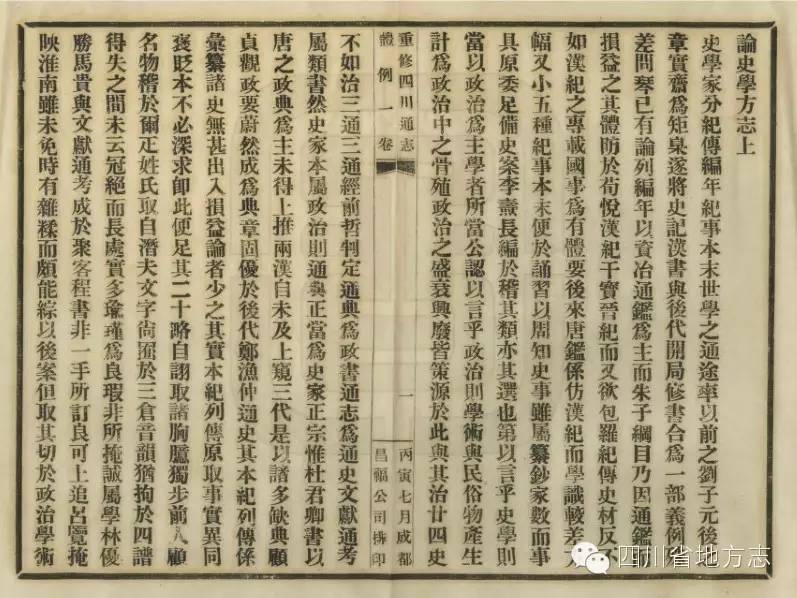 論史學方志上
史學家分紀傳編年紀事本末世學之通途率以前之劉子元後
章實齋爲矩臬遂將史記漢書與後代開局修書合爲一部義例
差間琴已有論列編年以資治通鑑爲主而朱子綱目乃因通鑑
損益之其體昉於荀悅漢紀干寶晉紀而又欲包羅紀傳史材反
如漢紀之專載國事爲有體要後來唐鑑係仿漢紀而學識較差
幅又小五種紀事本末便於誦習以周知史事雖屬纂鈔家數而事
具原委足備史案李燾長編於稽其類亦其選也第以言乎史學則
當以政治爲主學者所當公認以言乎政治則學術與民俗物產生
計爲政治中之骨殖政治之盛衰興廢皆策源於此與其治廿四史
重修四川通志
體例一卷
一
丙寅七月成都
昌福公司排印
不如治三通三通經前哲判定通典爲政書通志爲通史文獻通考
屬類書然史家本屬政治則通典正當爲史家正宗惟杜君卿書以
唐之政典爲主未得上推兩漢自未及上窺三代是以諸多缺典顧
貞觀政要蔚然成爲典章固優於後代鄭漁仲通史其本紀列傳係
彙纂諸史無甚出入損益論者少之其實本紀列傳原取事實異同
褒貶本不必深求卽此便足其二十略自詡取諸胸臆獨步前人顧
名物稽於爾疋姓氏取自潛夫文字尙囿於三倉音韻猶拘於四譜
得失之間未云冠絕而長處實多瑜瑾爲良瑕非所掩誠屬學林優
勝馬貴與文獻通考成於聚客程書非一手所訂良可上追呂覽掩
映淮南雖未免時有雜糅而頗能綜以後案但取其切於政治學術
四川省地方志